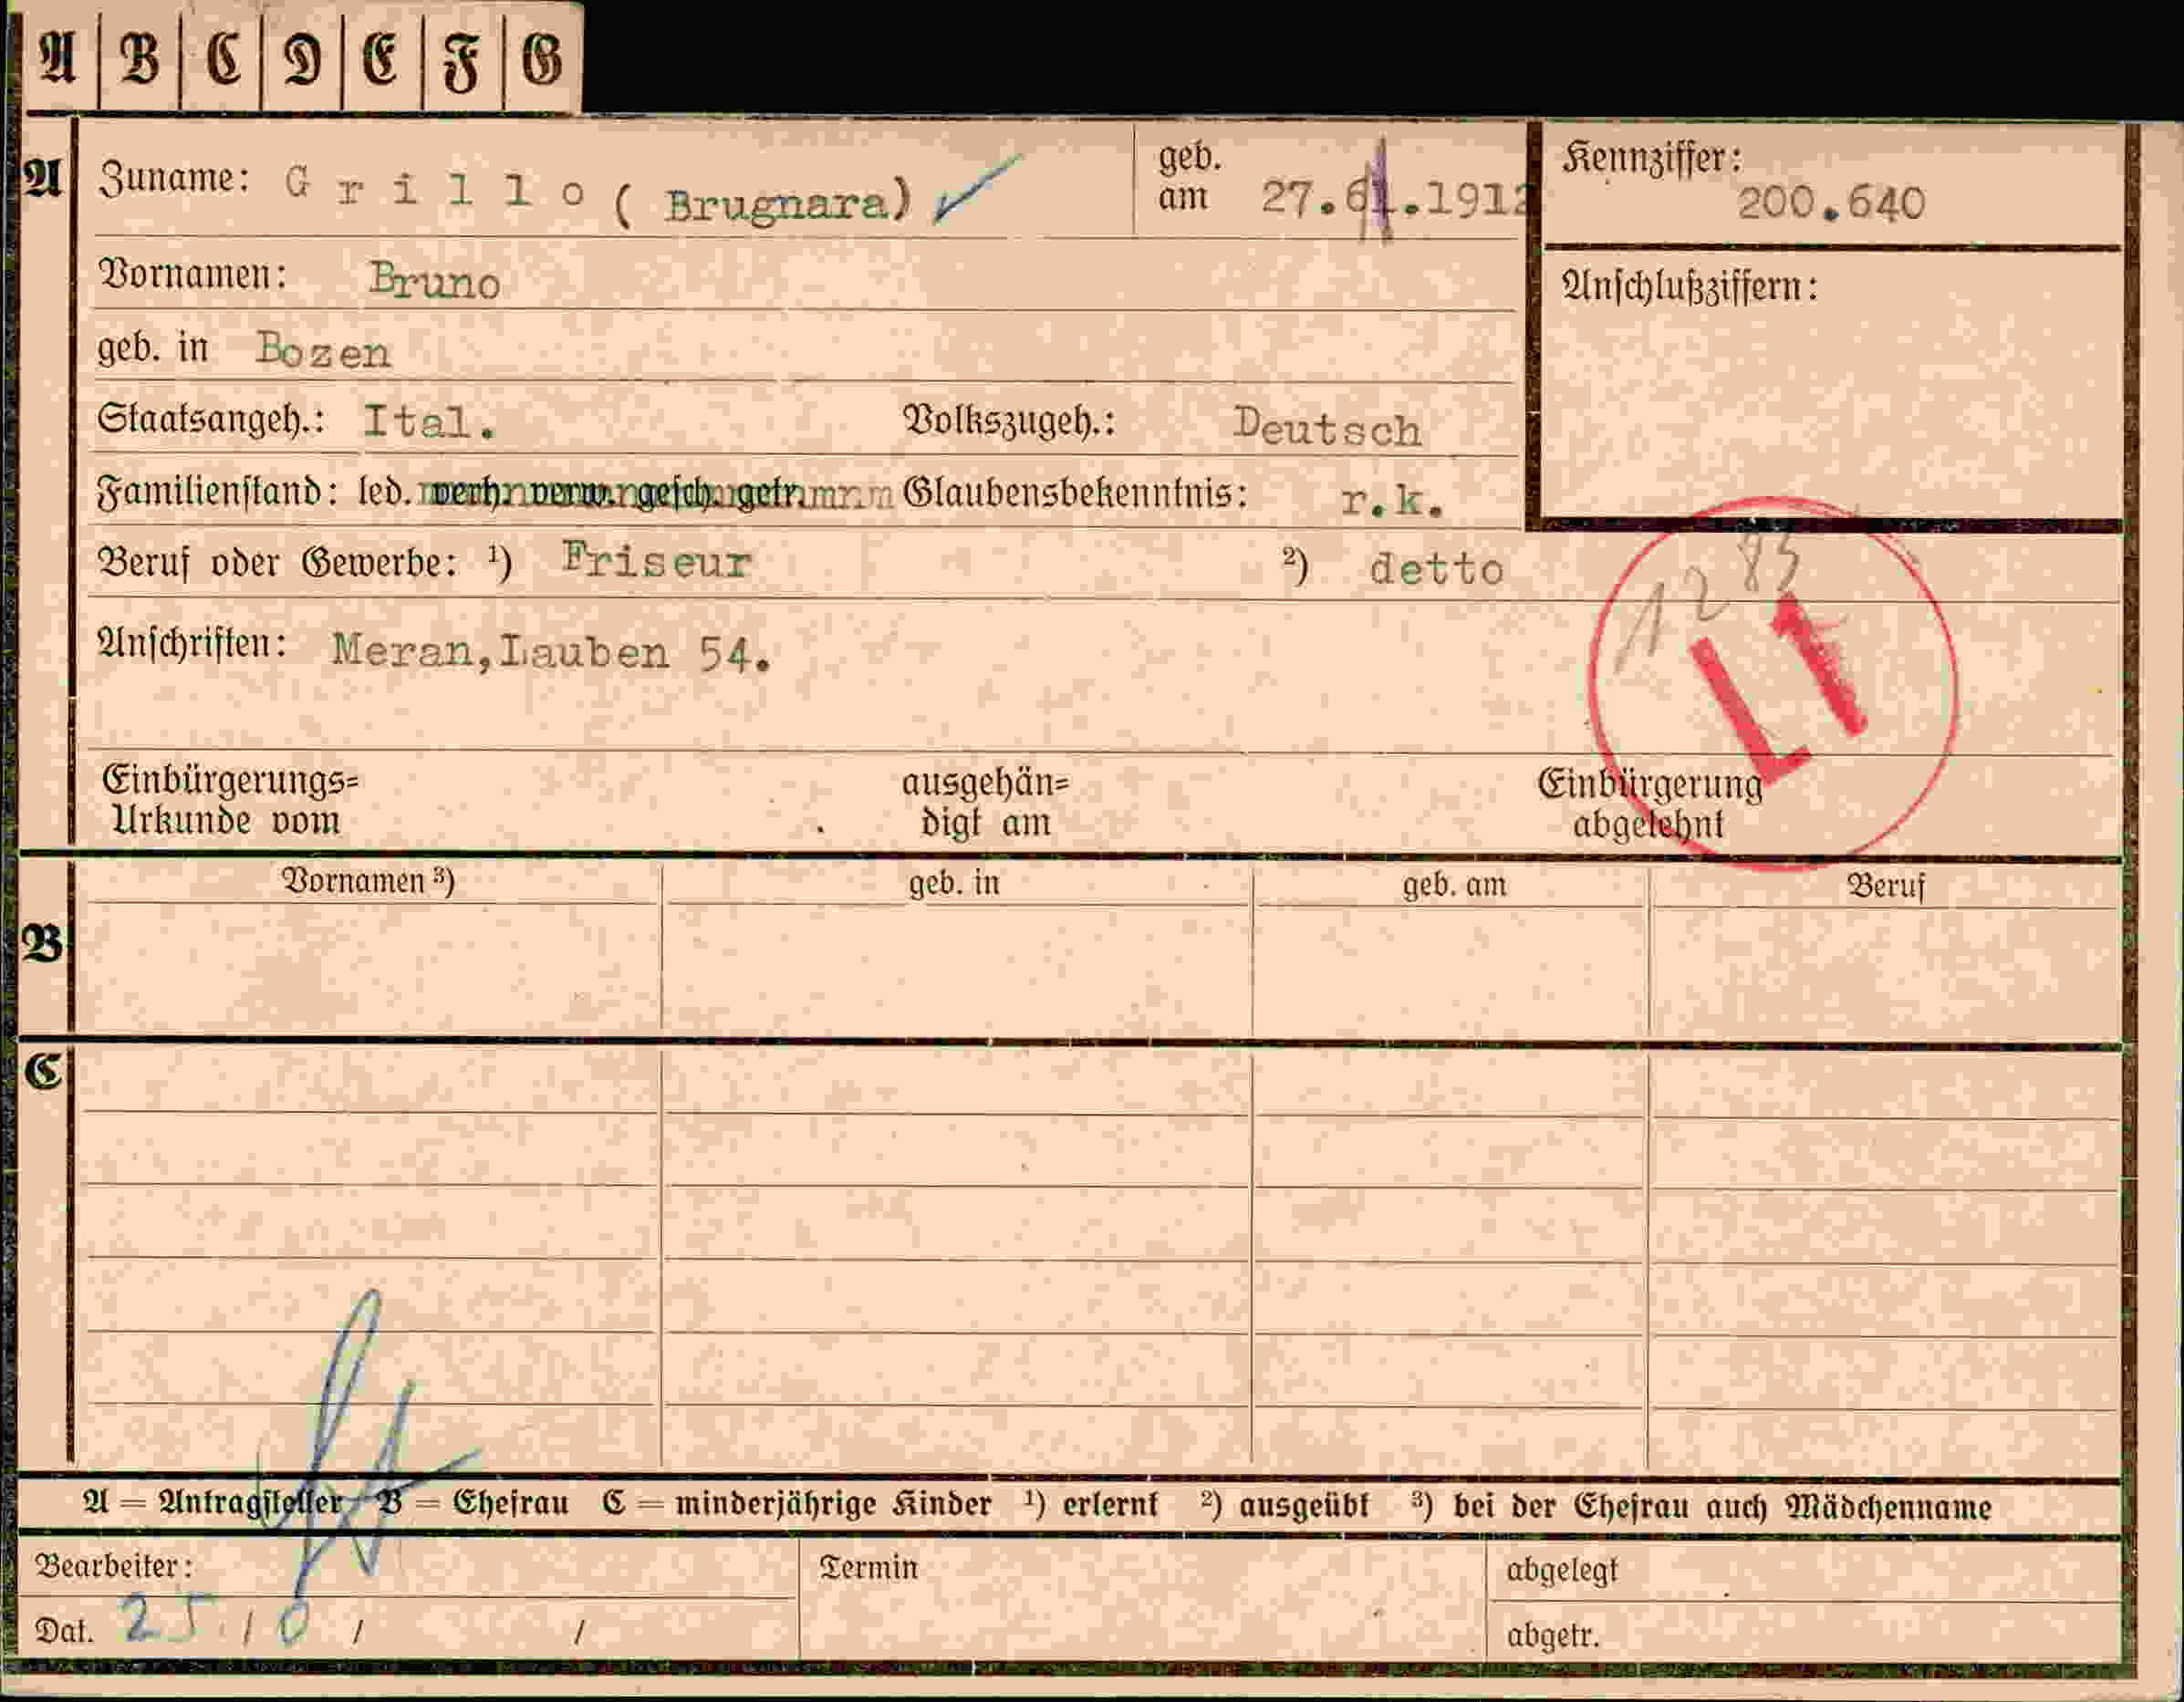 A B C D E F G
A Zuname: Grillo (Brugnara) geb. am 27. .1912 Kennziffer: 200.640
Vornamen: Bruno Anschlußziffern:
geb. in Bozen
Staatsangeh.: Ital. Volkszugeh.: Deutsch
Familienstand: led. verh. verw. gesch. getr. Glaubensbekenntnis: r.k.
Beruf oder Gewerbe: ¹) Friseur ²) detto
1283
Anschriften: Meran,Lauben 54.
Einbürgerungs= ausgehän= Einbürgerung
Urkunde vom digt am abgelehnt
B Vornamen ³) geb. in geb. am Beruf
C
A = Antragsteller B = Ehefrau C = minderjährige Kinder ¹) erlernt ²) ausgeübt ³) bei der Ehefrau auch Mädchenname
Bearbeiter: Termin abgelegt
Dat. 25.10 / / abgetr.